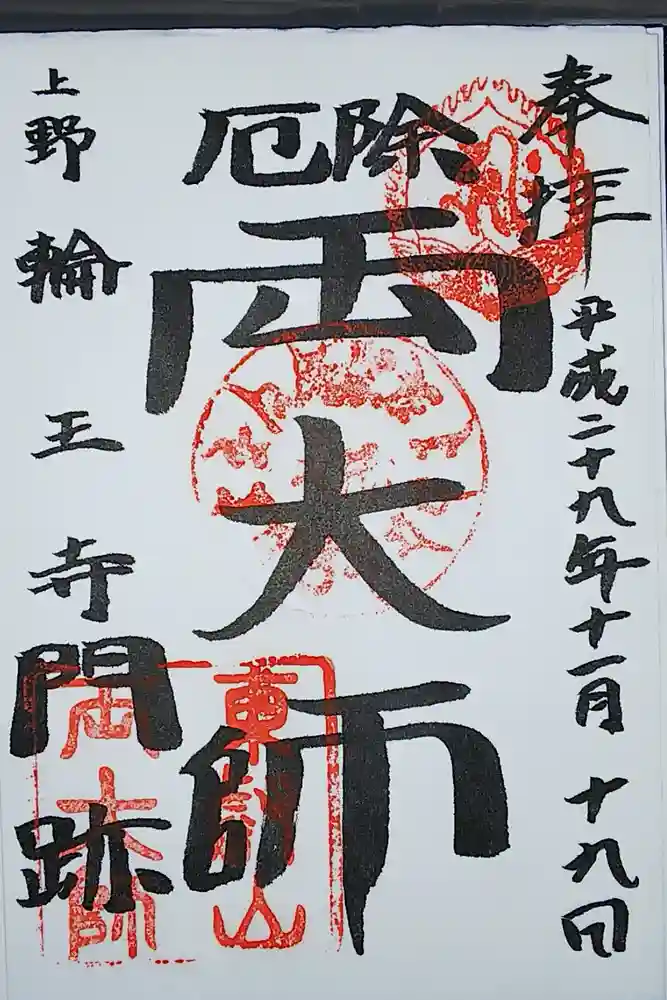 奉拝
平成二十九年十一月十九日
厄除
両大師
上野輪王寺
門跡
東叡山
両大師